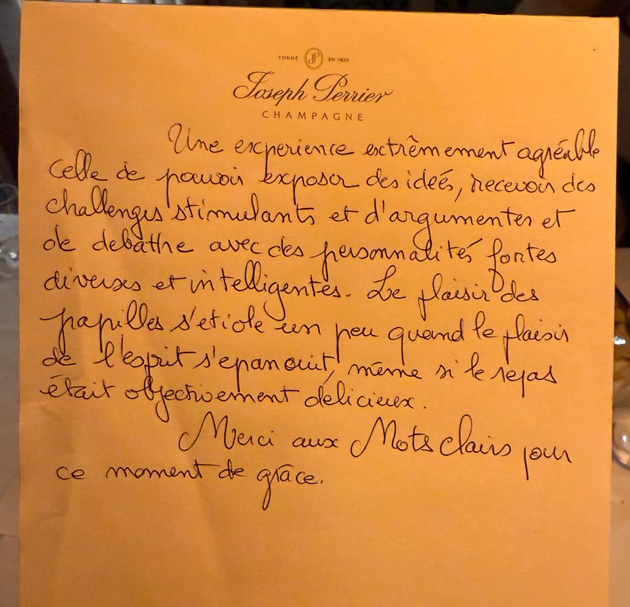 FONDÉ JP EN 1825
Joseph Perrier
CHAMPAGNE
Une experience extrêmement agréable
celle de pouvoir exposer des ideés, recevoir des
challenges stimulants et d'argumenter et
de debathe avec des personnalités fortes
diverses et intelligentes. Le plaisir des
papilles s'etiole un peu quand le plaisir
de l'esprit s'epanouit, même si le repas
était objectivement délicieux.
Merci aux Mots clairs pour
ce moment de grâce.